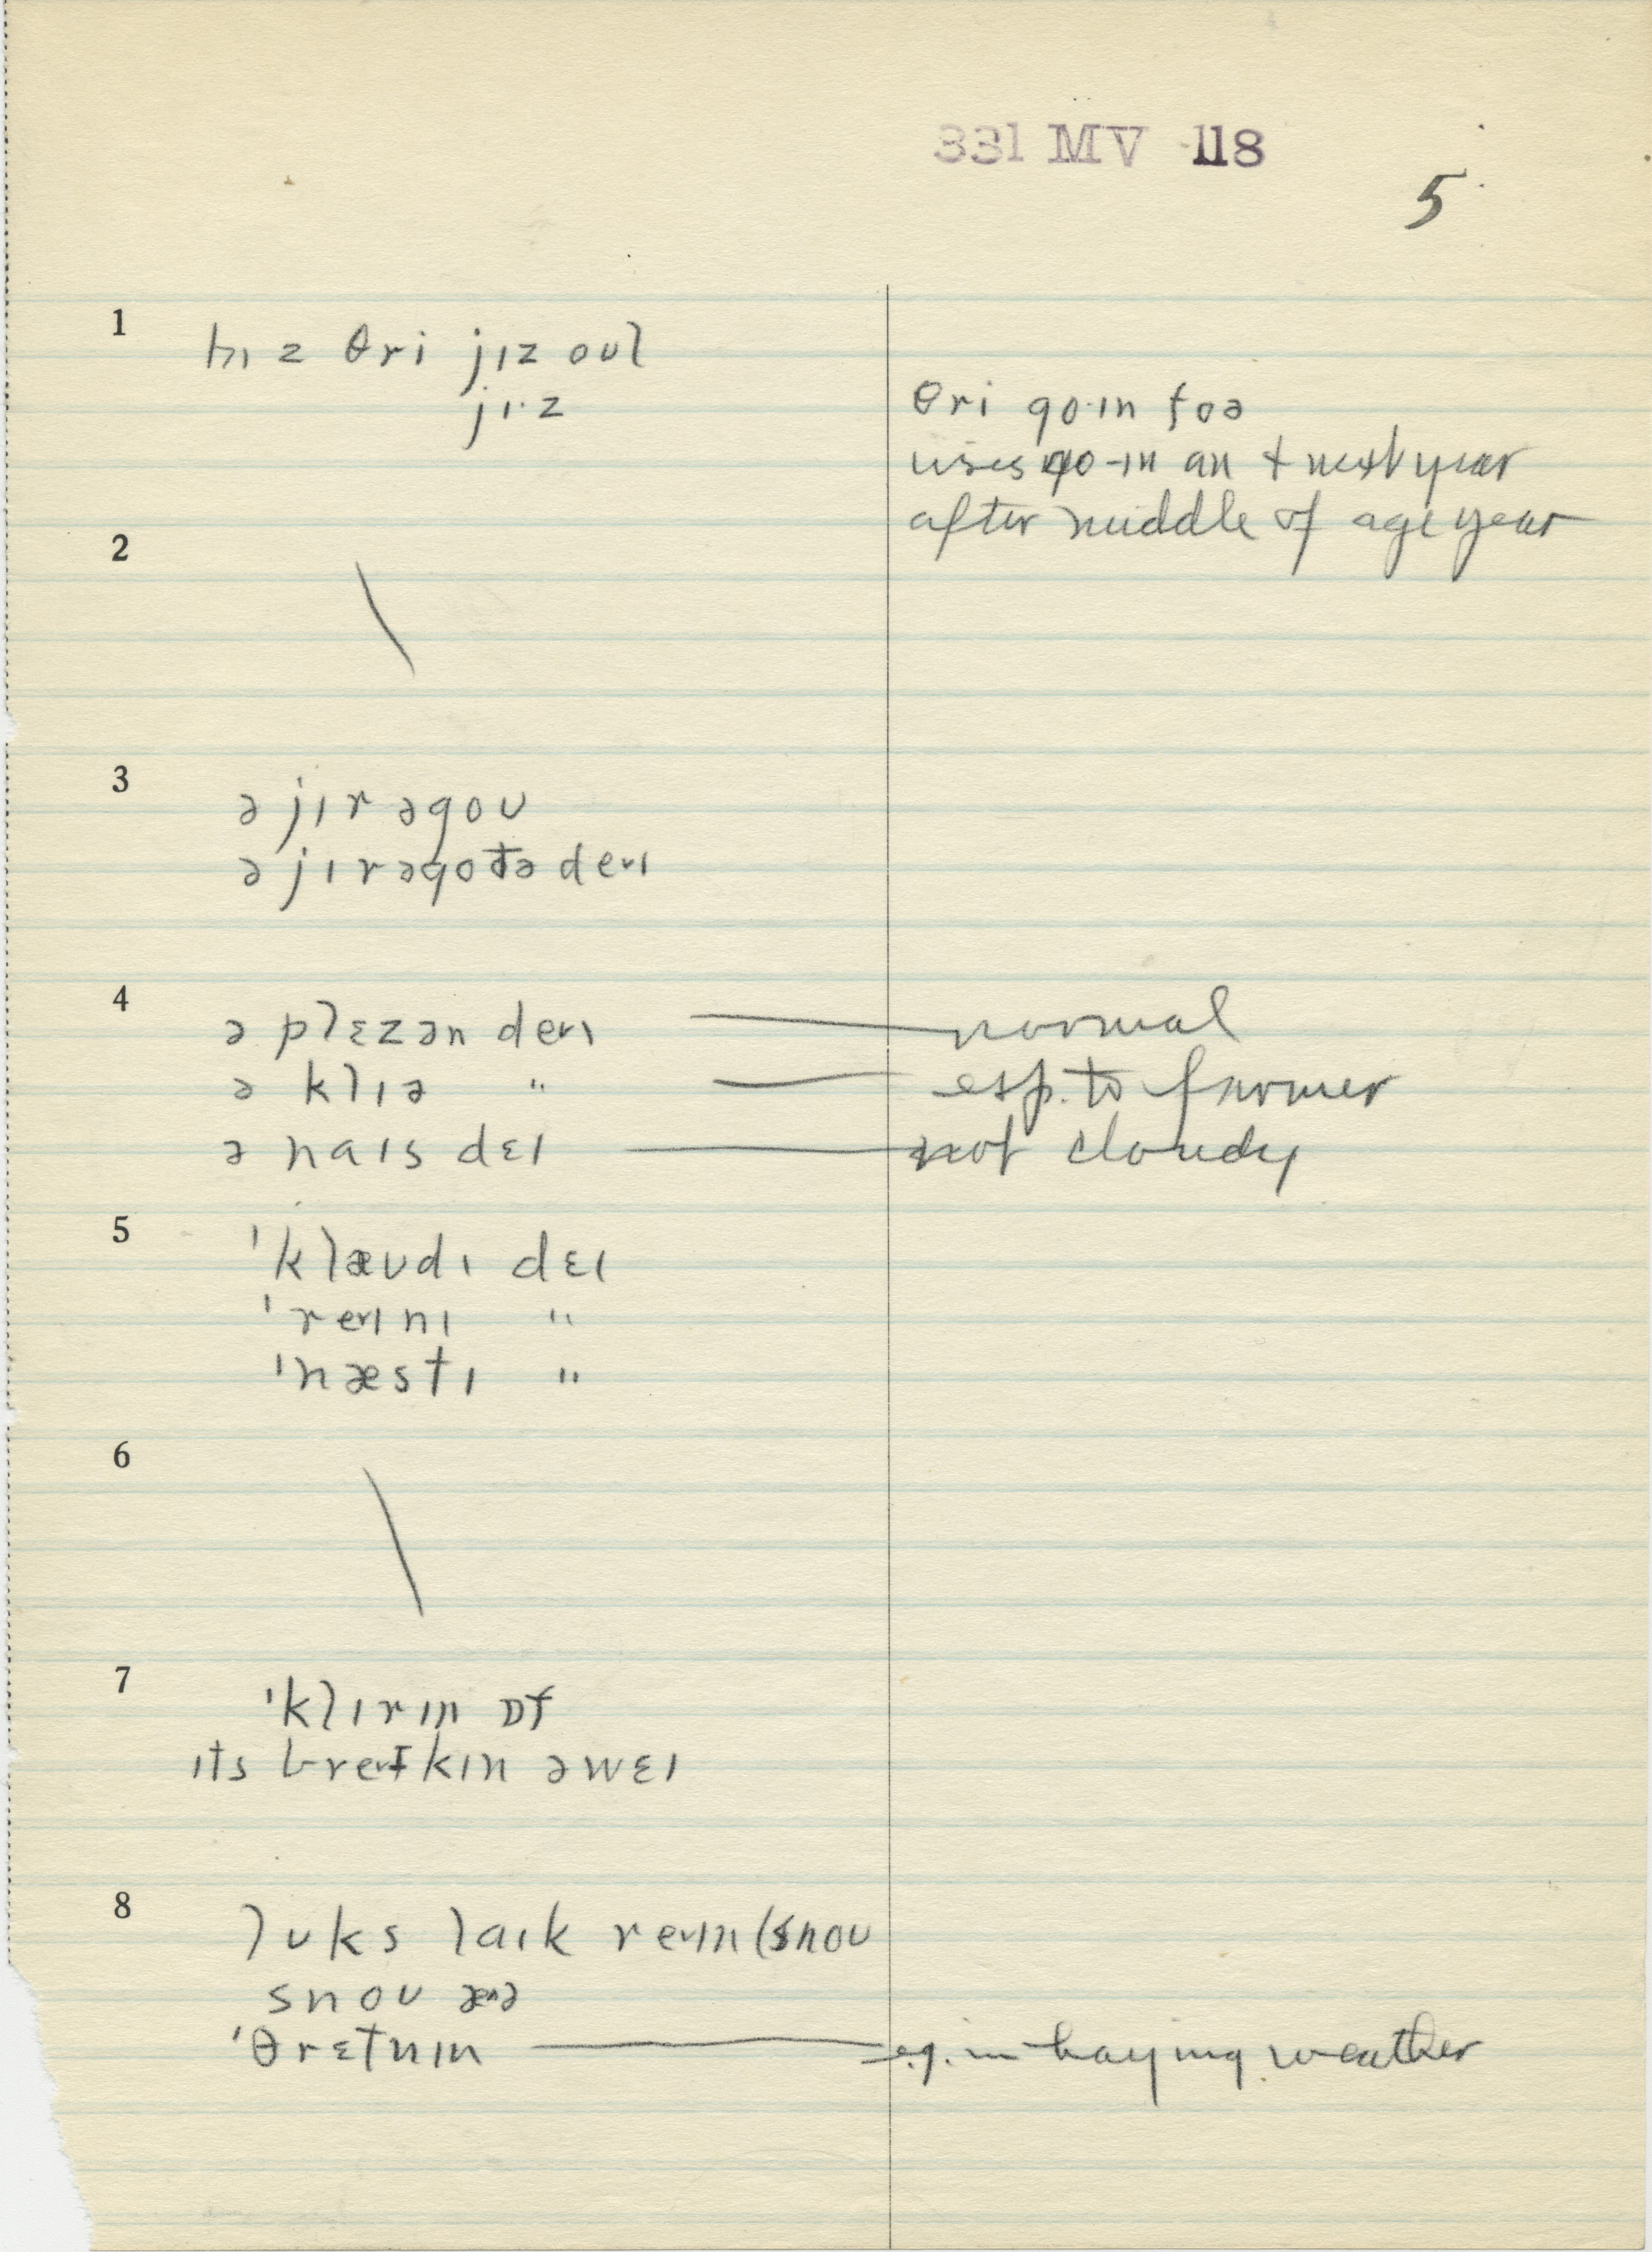 331 MV 118
5
1
hɪz θri jɪz oʊl
jɪ·z
θri go·ɪn foə
uses go-ɪn an + next year
after middle of age year
2
3
ə jɪr əgoʊ
ə jɪr əgo tə deɪ
4
ə plɛzən deɪ — normal
ə klɪə " — esp. to farmer
ə naɪs dɛɪ — not cloudy
5
ˈklæʊdɪ dɛɪ
ˈreɪnɪ "
ˈnæstɪ "
6
7
ˈklɪrɪn ɒf
ɪts breɪkɪn əwɛɪ
8
lʊks laɪk reɪn (snoʊ
snoʊ
ˈθrɛtnɪn — e.g. in haying weather